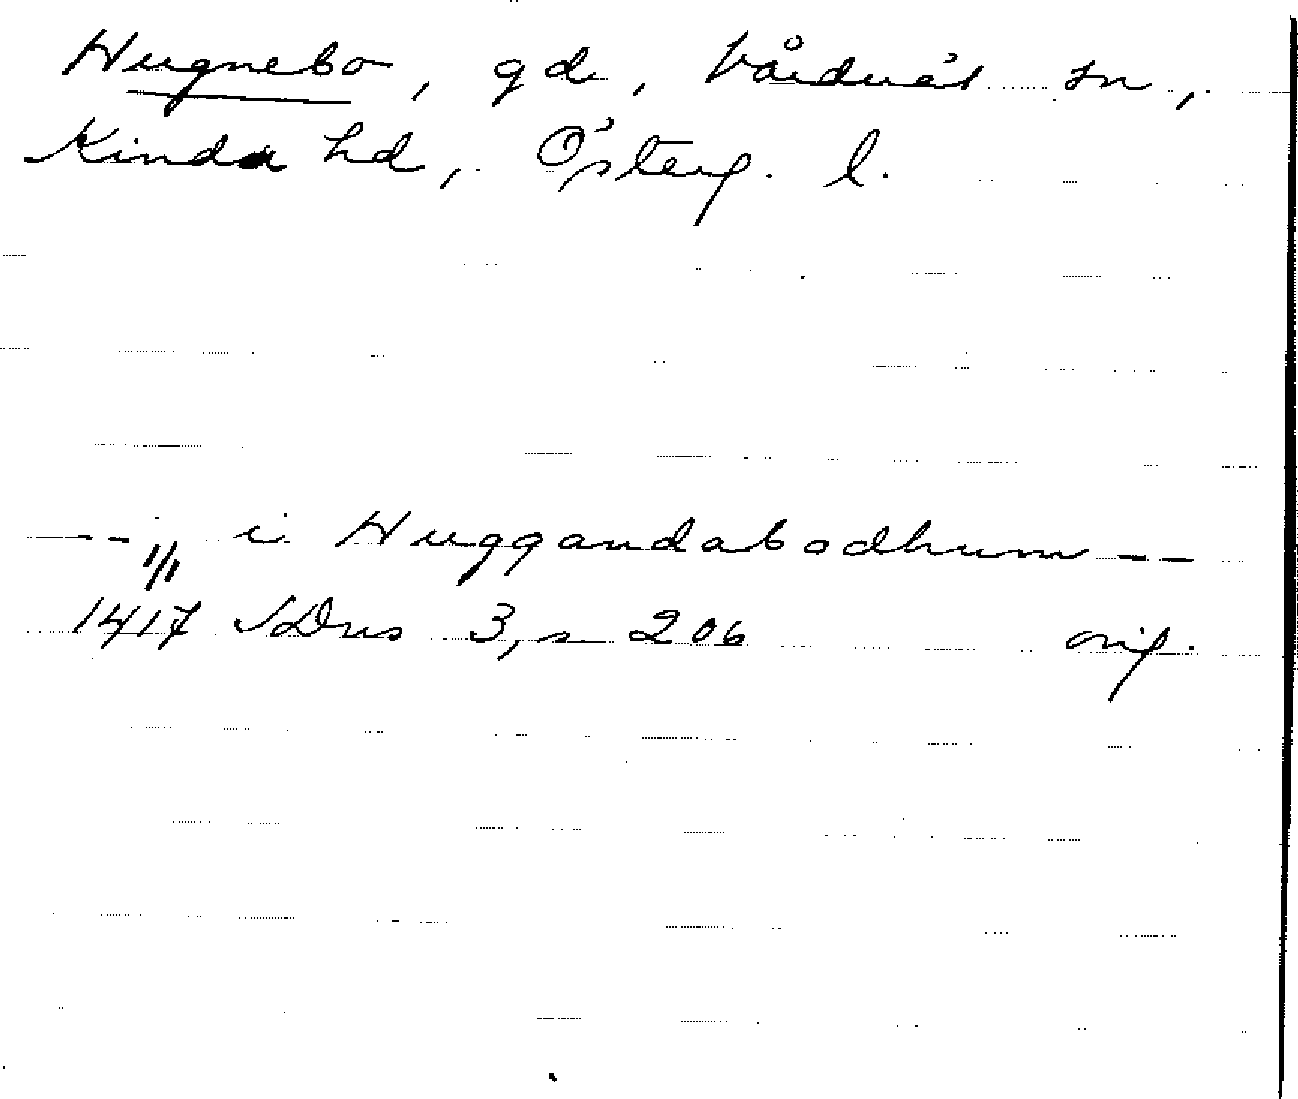 Hugnebo, gd, Vårdnäs sn,
Kinda hd, Österg. l.
--„ i Huggandabodhum --
1/1
1417 SDns 3, s 206 orig.